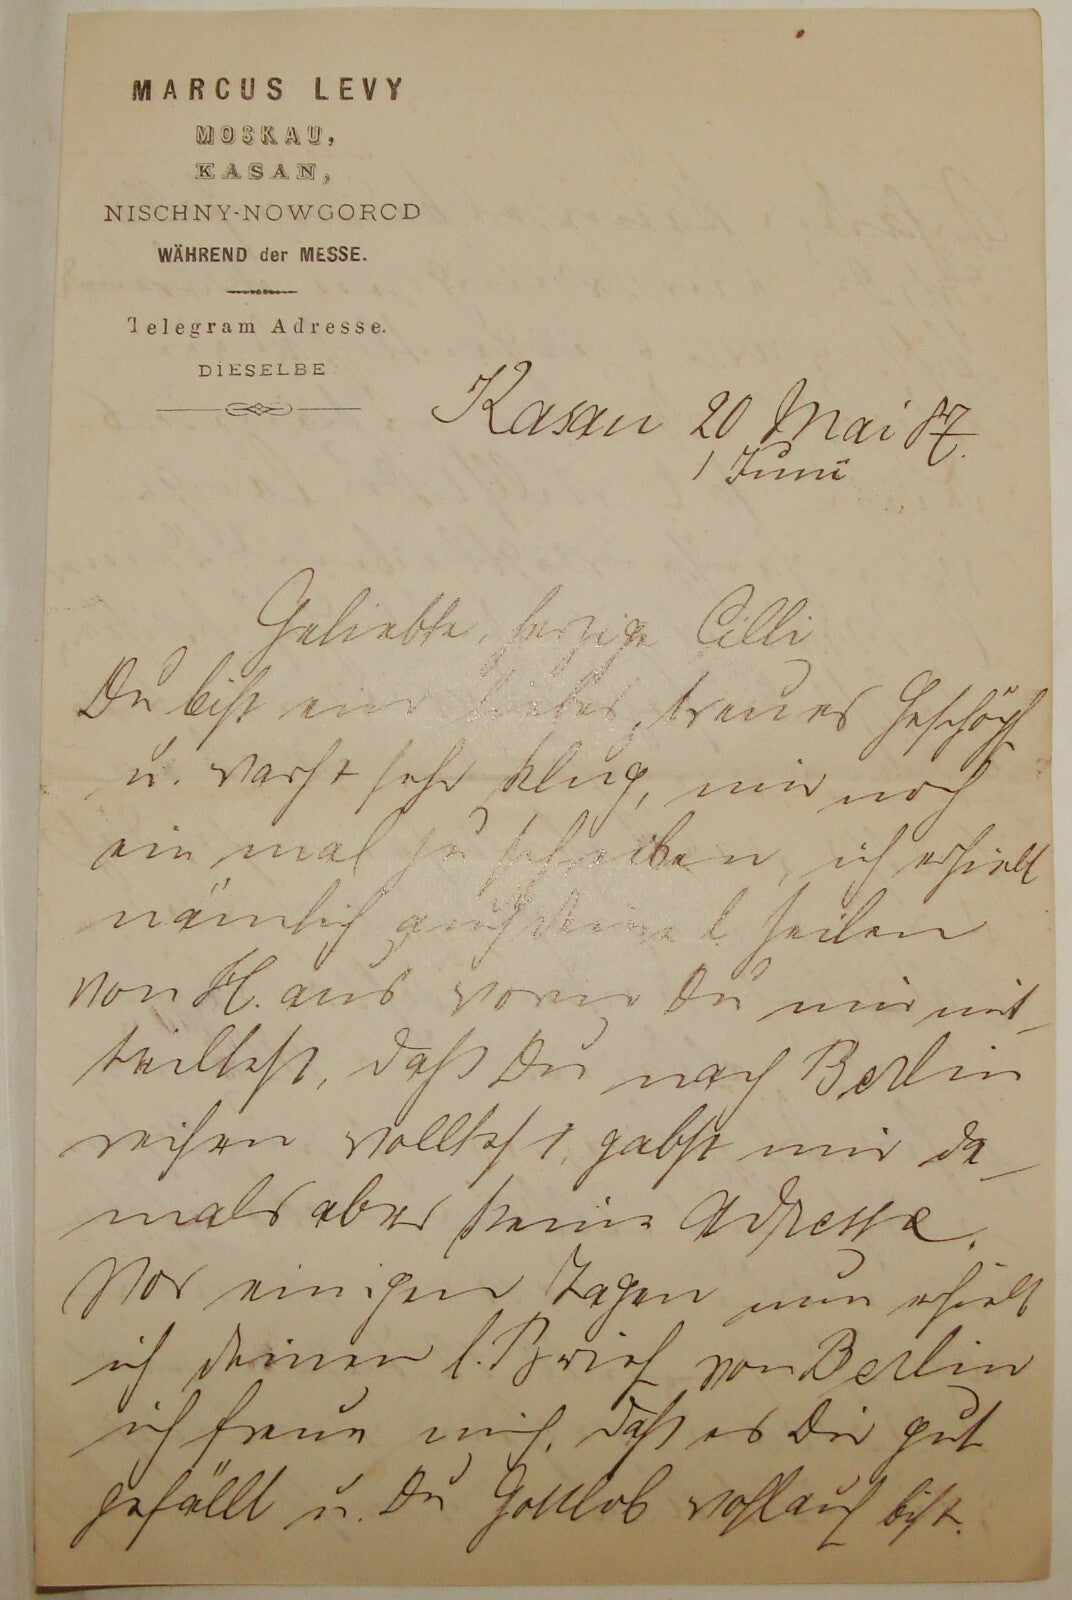 MARCUS LEVY
MOSKAU,
KASAN,
NISCHNY-NOWGOROD
WÄHREND der MESSE.
Telegram Adresse.
DIESELBE
Kasan 20 Mai 87.
1 Juni
Geliebte, herzige Cilli
Du bist ein liebes, treues Geschöpf
u. warst sehr klug, mir noch
ein mal zu schreiben, ich erhielt
nämlich auch Deine l. Zeilen
von H. aus worin Du mir mit-
teiltest, daß Du nach Berlin
reisen wolltest, gabst mir da-
mals aber keine Adresse.
Vor einigen Tagen nun erhielt
ich Deinen l. Brief von Berlin
ich freue mich, daß es Dir gut
gefällt u. Du Gottlob wohlauf bist.